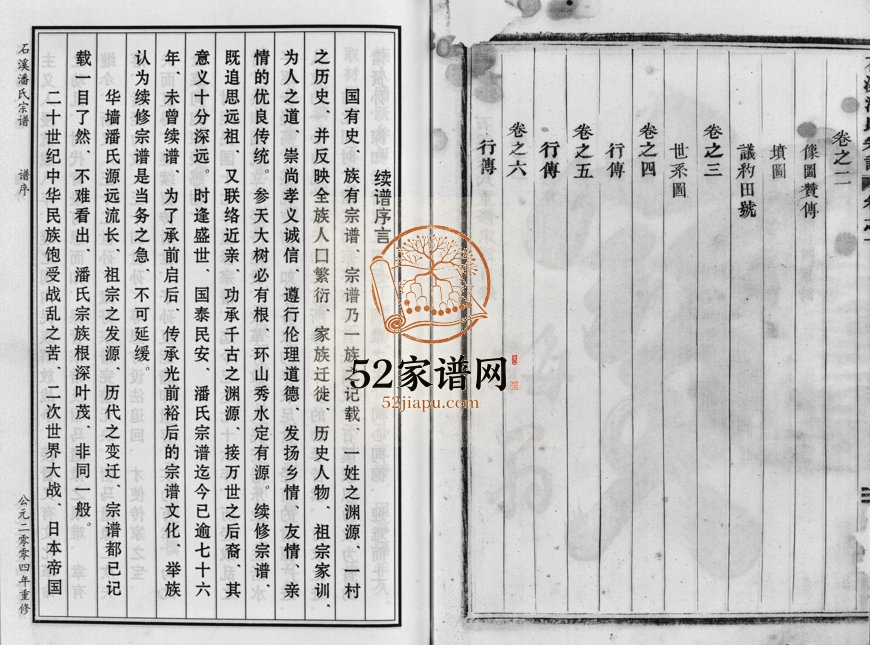 卷之二
像圖贊傳
墳圖
議約田號
卷之三
世系圖
卷之四
行傳
卷之五
行傳
卷之六
行傳
续谱序言
国有史、族有宗谱、宗谱乃一族之记载、一姓之渊源、一村
之历史、并反映全族人口繁衍、家族迁徙、历史人物、祖宗家训、
为人之道、崇尚孝义诚信、遵行伦理道德、发扬乡情、友情、亲
情的优良传统。参天大树必有根、环山秀水定有源。续修宗谱、
既追思远祖、又联络近亲、功承千古之渊源、接万世之后裔、其
意义十分深远。时逢盛世、国泰民安、潘氏宗谱迄今已逾七十六
年、未曾续谱、为了承前启后、传承光前裕后的宗谱文化、举族
认为续修宗谱是当务之急、不可延缓。
华墙潘氏源远流长、祖宗之发源、历代之变迁、宗谱都已记
载一目了然、不难看出、潘氏宗族根深叶茂、非同一般。
二十世纪中华民族饱受战乱之苦、二次世界大战、日本帝国
石溪潘氏宗谱 谱序 公元二零零四年重修
52家谱网
52jiapu.com